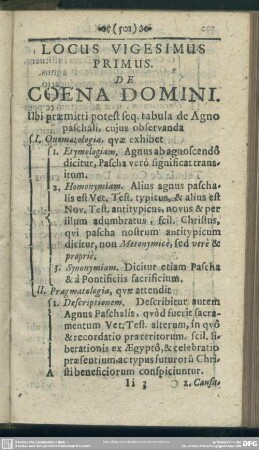 (501)
LOCUS VIGESIMUS
PRIMUS.
DE
COENA DOMINI.
Ubi præmitti potest seq. tabula de Agno
paschali, cujus observanda
I. Onomatologia, quæ exhibet
1. Etymologiam, Agnus ab agnoscendô
dicitur, Pascha verò significat trans-
itum.
2. Homonymiam. Alius agnus pascha-
lis est Vet. Test. typicus, & alius est
Nov. Test. antitypicus, novus & per
illum adumbratus, scil. Christus,
qvi pascha nostrum antitypicum
dicitur, non Metonymicè, sed verè &
propriè,
3. Synonymiam. Dicitur etiam Pascha
& à Pontificiis sacrificium.
II. Pragmatologia, quæ attendit
1. Descriptionem. Describitur autem
Agnus Paschalis, qvòd fuerit sacra-
mentum Vet. Test. alterum, in qvô
& recordatio præteritorum, scil. li-
berationis ex Ægyptô, & celebratio
præsentium ac typus futurorũ Chri-
A sti beneficiorum conspiciuntur.
Ii 3 C 2. Causas